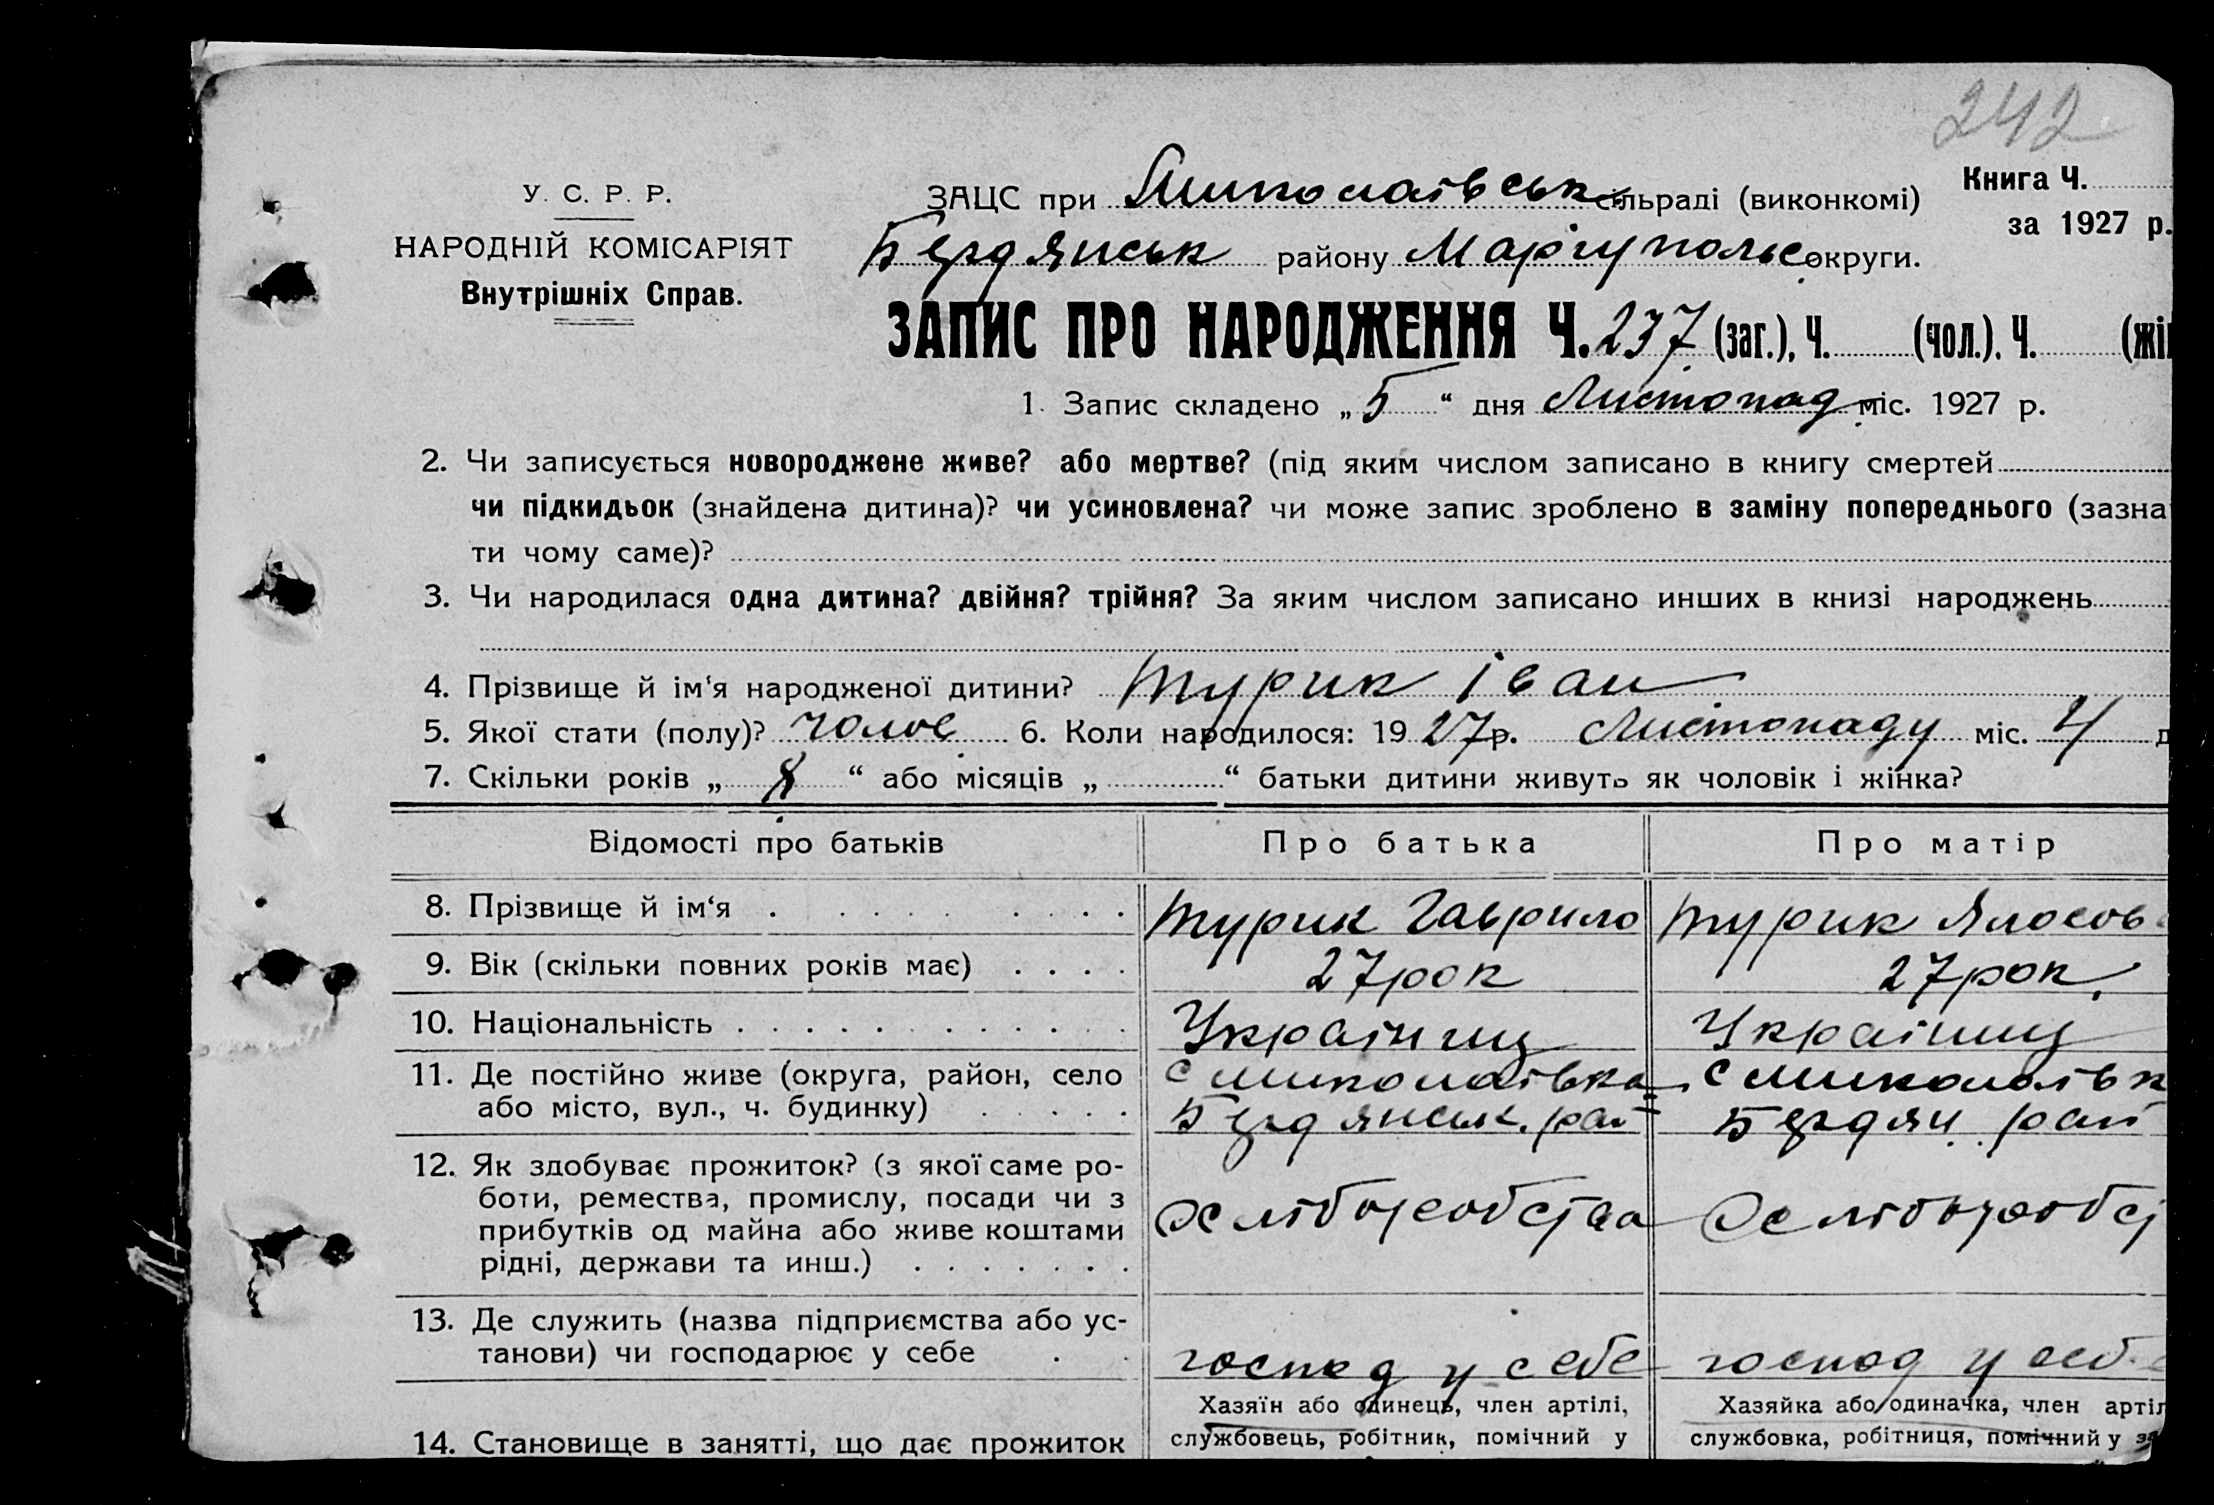 242
У. С. Р. Р.
НАРОДНІЙ КОМІСАРІЯТ
Внутрішніх Справ.
ЗАЦС при Миколаівськ сільраді (виконкомі)
Бердянськ району Маріупольс округи.
Книга Ч.
за 1927 р.
ЗАПИС ПРО НАРОДЖЕННЯ Ч. 237 (заг.), Ч. (чол.). Ч. (жі
1. Запис складено „ 5 “ дня Листопад міс. 1927 р.
2. Чи записується новороджене живе? або мертве? (під яким числом записано в книгу смертей
чи підкидьок (знайдена дитина)? чи усиновлена? чи може запис зроблено в заміну попереднього (зазна
ти чому саме)?
3. Чи народилася одна дитина? двійня? трійня? За яким числом записано инших в книзі народжень
4. Прізвище й ім'я народженої дитини? Турик Іван
5. Якої стати (полу)? чолов 6. Коли народилося: 19 27 р. Листопаду міс. 4 д
7. Скільки років „ 8 “ або місяців „ “ батьки дитини живуть як чоловік і жінка?
Відомості про батьків Про батька Про матір
8. Прізвище й ім‘я Турик Гаврило Турик
9. Вік (скільки повних років має) 27 рок 27 рок.
10. Національність Украінці Украінці
11. Де постійно живе (округа, район, село або місто, вул., ч. будинку)
с Миколаівка
Бердянськ. рай
с Миколаівк
Бердян. рай
12. Як здобуває прожиток? (з якої саме ро-
боти, ремества, промислу, посади чи з
прибутків од майна або живе коштами
рідні, держави та инш.)
13. Де служить (назва підприємства або ус-
танови) чи господарює у себе
господ у себе
господ у себ
14. Становище в занятті, що дає прожиток
Хазяїн або одинець, член артілі,
службовець, робітник, помічний у
Хазяйка або одиначка, член артіл
службовка, робітниця, помічний у за